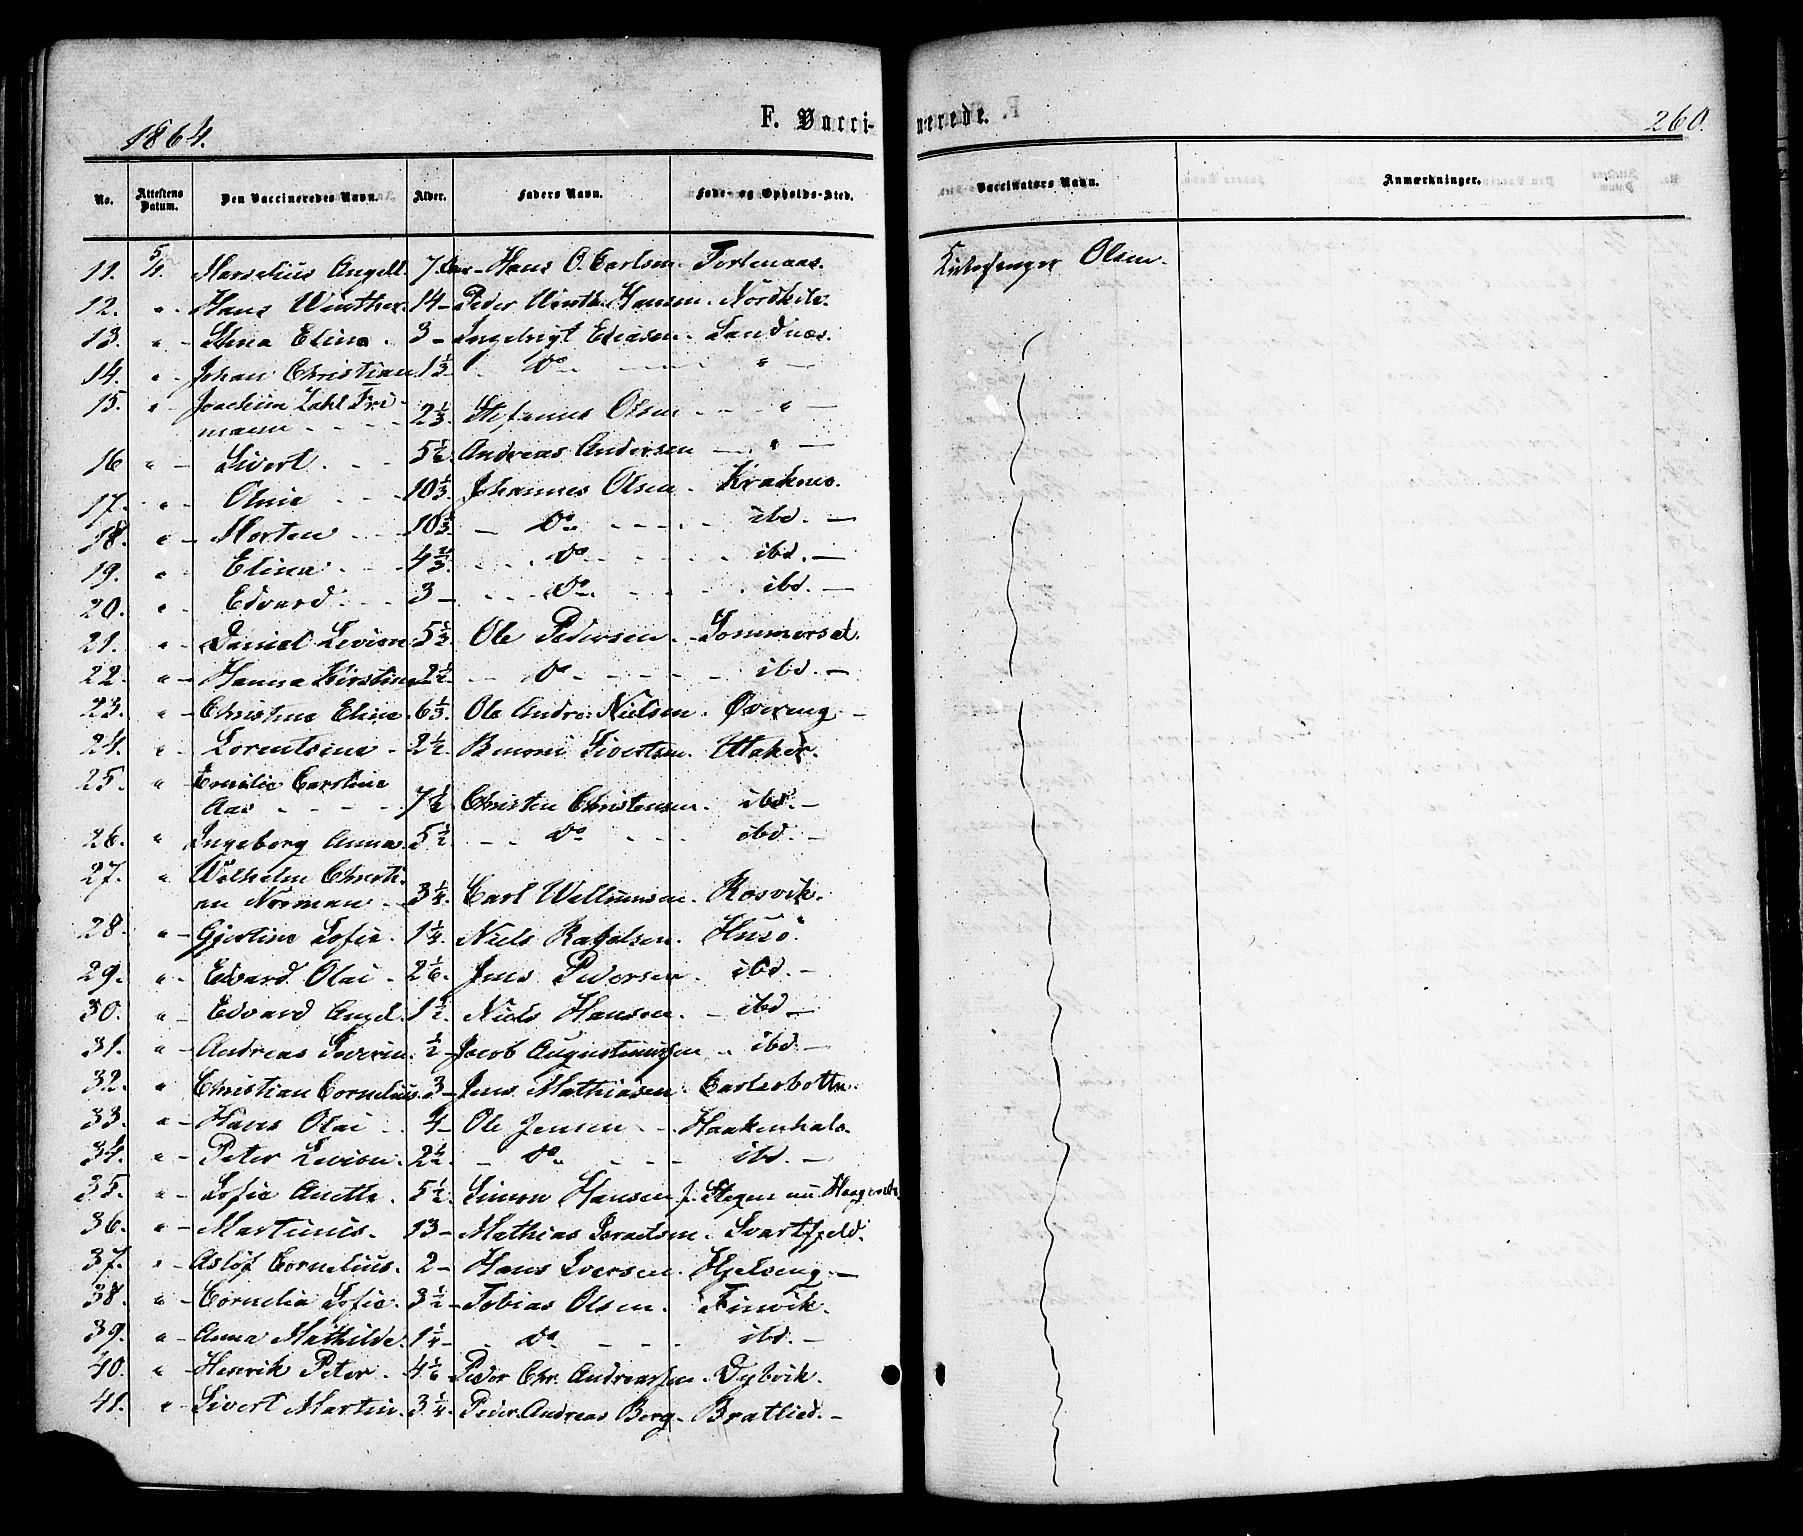 1864.
F. Vacci-
nerede.
260.
No. Attestens Datum. Den Vaccineredes Navn. Alder. Faders Navn. Føde- og Opholds-Sted. Vaccinators Navn. Anmærkninger.
11. 5/4. Marselius Angell. 7 Aar - Hans O. Carlsen. Olsen.
12. " - Hans Winther. 14 - Peder Winth. Hansen.
13. " - Stina Elina. 3 - Ingebrigt Eliasen. Sandnæs.
14. " - Johan Christian. 1 1/3. Do " -
15. " - Joachim Zahl Fri-
mann 2 1/3. Stefanus Olsen " -
16 " - Sivert. 5 1/2. Andreas Andersen " -
17. " - Oline 10 1/3. Johannes Olsen. Krakmo.
18. " - Morten 10 1/3. Do ibd. -
19. " - Elina 4 2/3. Do ibd. -
20. " - Edvard 3 - Do ibd. -
21. " - Daniel Levion. 5 1/3. Ole Pedersen. Sommerset.
22. " - Hanna Kirstine 2 1/2. Do ibd. -
23. " - Christine Eline. 6 1/3. Ole Andr. Nielsen. Øvereng -
24. " - Lorentsine - 2 1/2. Benoni Sivertsen. Uttaker.
25. " Emilie Caroline
Aas 7 1/2. Christen Christensen. ibd. -
26. " Ingeborg Anna. 5 1/2. Do ibd. -
27. " Wilhelm Christi-
an Norman 3 1/4. Carl Willumsen. Rosvik.
28. " - Gjertine Sofie. 1 1/4. Niels Rafelsen. Husö.
29. " - Edvard Olai - 2 1/6. Jens Pedersen ibd. -
30. " - Edvard Angel. 1 1/2. Niels Hansen. ibd. -
31. " - Andreas Severin. 1/2 - Jacob Augustinussen ibd. -
32. " Christian Cornelius. 3 - Jens Mathiasen. Carlsobotten.
33. " - Hans Olai 4 - Ole Jensen Haakenhals.
34. " - Peter Levion. 2 1/2. Do ibd. -
35. " - Sofie Anette. 5 1/2. Simon Hansen f. Stegen nu
36. " - Martinus. 13 - Mathias Israelsen. Svartfjeld.
37. " - Asløf Cornelius. 2 - Hans Iversen. Hjelseng. -
38. " - Cornelia Sofie. 3 1/2 - Tobias Olsen. Finvik.
39. " - Anna Mathilde. 1 1/4 - Do ibd. -
40. " - Henrik Peter. 4 1/6 - Peder Chr. Andreassen. Dybvik.
41. " - Sivert Martin. 3 1/4. Peder Andreas Berg. Bratlied. -